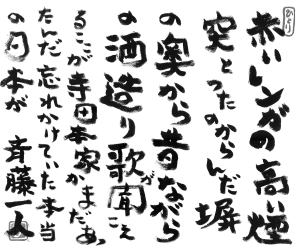 赤いレンガの高い煙
突とつたのからんだ塀
の奥から昔ながら
の酒造り歌が聞こえ
るここが寺田本家かまだあっ
たんだ忘れかけていた本当
の日本が 斉藤一人
ひとり